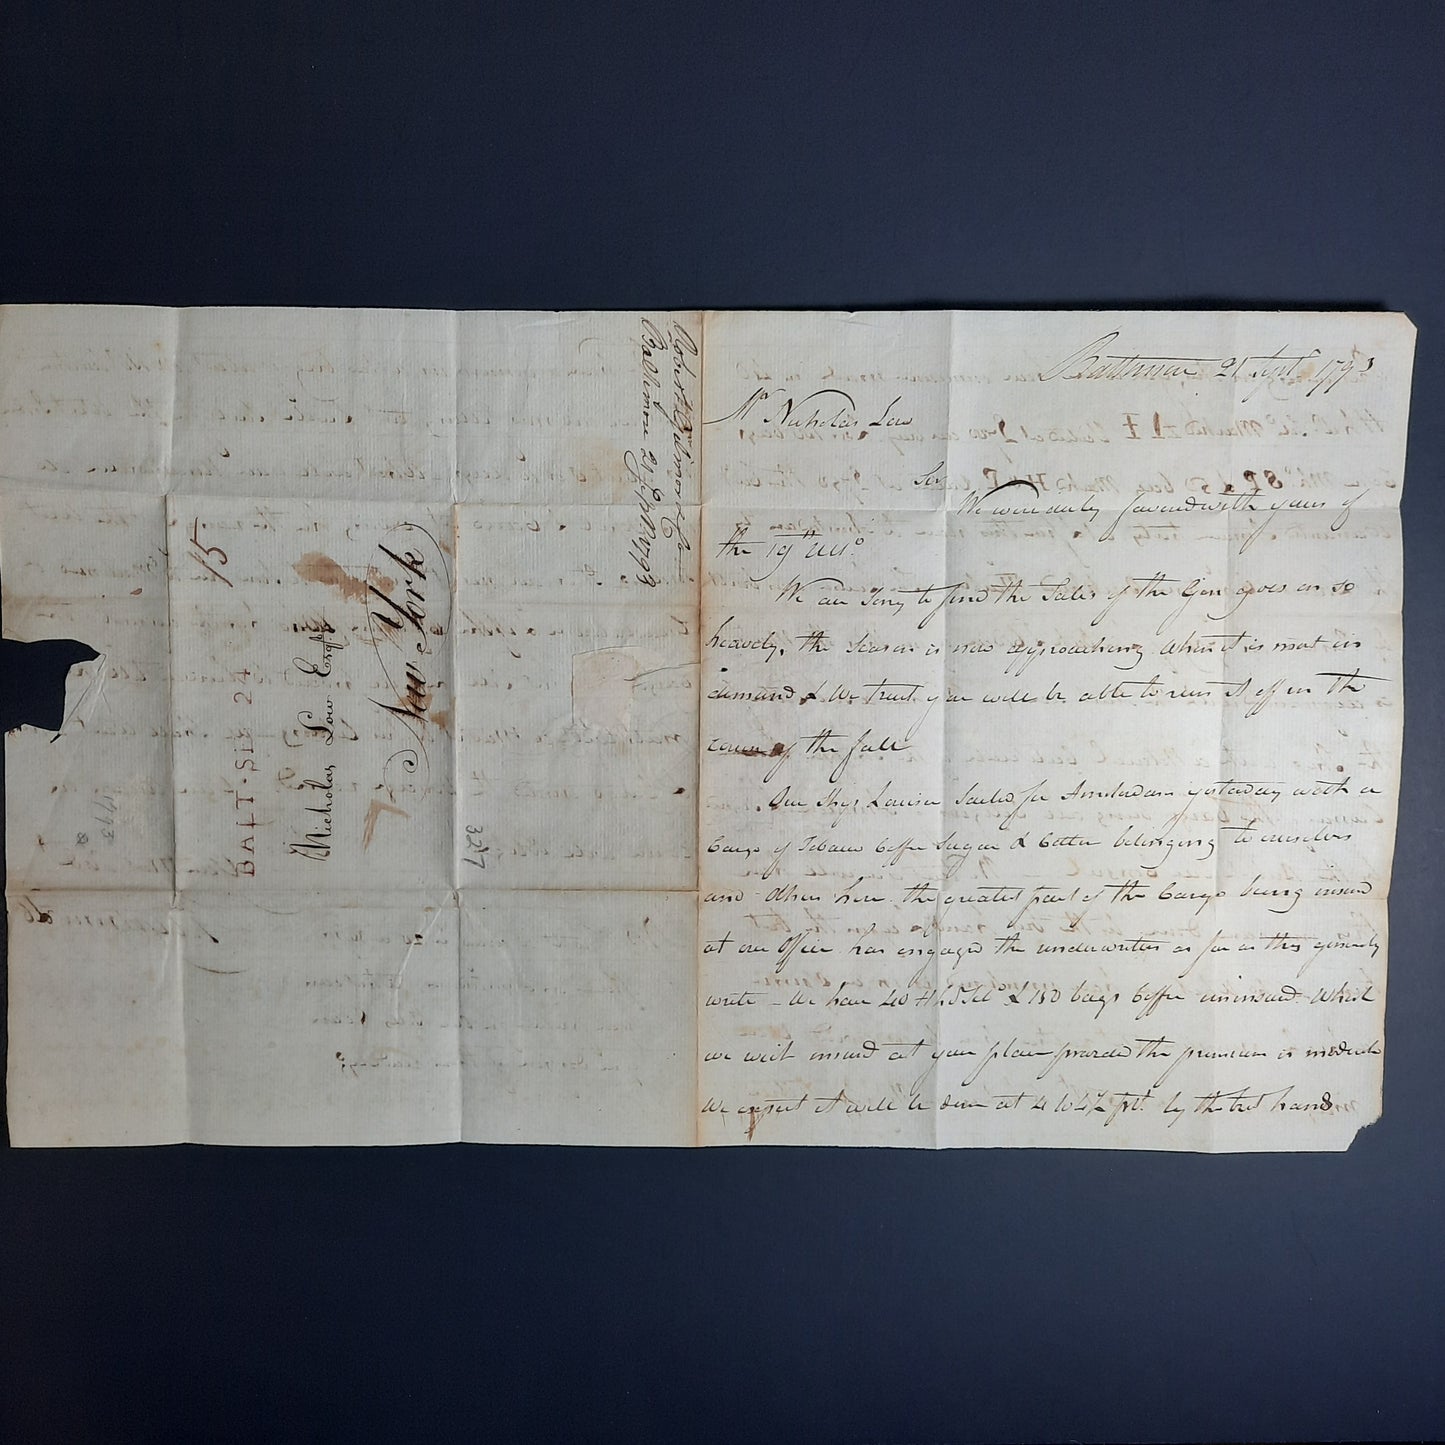 Baltimore 21 Sept 1793
Mr Nicholas Low
Sir
We were duly favourd with yours of
the 19th Ulto
We are Sorry to find the Sales of the Gin goes on so
heavely, the Season is now approaching when it is most in
demand & We trust you will be able to run it off in the
course of the fall
Our Ship Louisa Sailed for Amsterdam yesterday with a
Cargo of Tobacco Coffee Sugar & Cotton belonging to ourselves
and others here the greatest part of the Cargo being insured
at our Office has engaged the underwriters as far as they generally
write - We have 40 Hhds Tobo & 150 bags Coffee uninsured Which
we wish insured at your place provided the premium is moderate
We expect it will be done at 4 to 4½ by the best hands
Robert Gilmor & Co
Baltimore 21 Sept 1793
15
BALT. SE 24
Nicholas Low Esqr
New York
327
1793
8